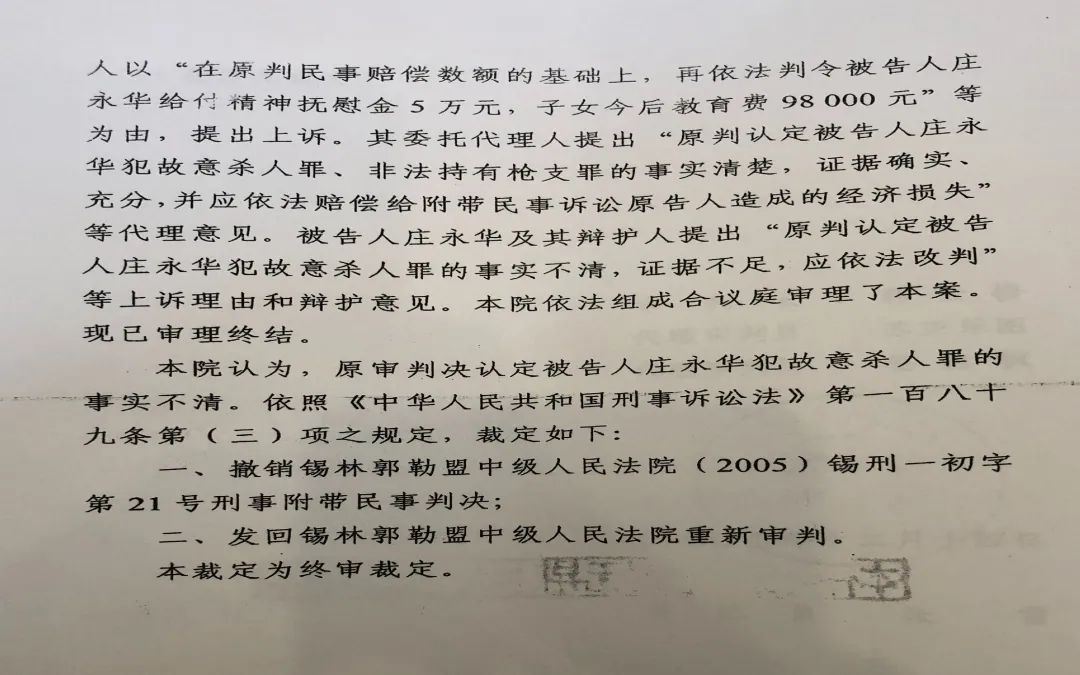 人以“在原判民事赔偿数额的基础上，再依法判令被告人庄
永华给付精神抚慰金5万元，子女今后教育费98 000元”等
为由，提出上诉。其委托代理人提出“原判认定被告人庄永
华犯故意杀人罪、非法持有枪支罪的事实清楚，证据确实、
充分，并应依法赔偿给附带民事诉讼原告人造成的经济损失”
等代理意见。被告人庄永华及其辩护人提出“原判认定被告
人庄永华犯故意杀人罪的事实不清，证据不足，应依法改判”
等上诉理由和辩护意见。本院依法组成合议庭审理了本案。
现已审理终结。
本院认为，原审判决认定被告人庄永华犯故意杀人罪的
事实不清。依照《中华人民共和国刑事诉讼法》第一百八十
九条第（三）项之规定，裁定如下：
一、撤销锡林郭勒盟中级人民法院（2005）锡刑一初字
第21号刑事附带民事判决；
二、发回锡林郭勒盟中级人民法院重新审判。
本裁定为终审裁定。